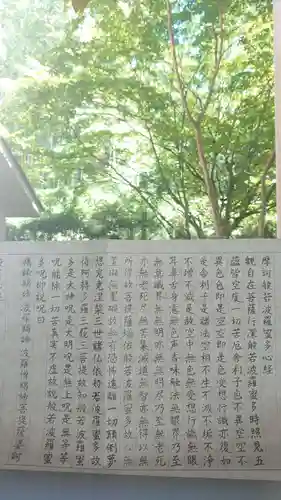 摩訶般若波羅蜜多心経
觀自在菩薩行深般若波羅蜜多時照見五
蘊皆空度一切苦厄舍利子色不異空空不
異色色即是空空即是色受想行識亦復如
是舍利子是諸法空相不生不滅不垢不浄
不增不減是故空中無色無受想行識無眼
耳鼻舌身意無色聲香味觸法無眼界乃至
無意識界無無明亦無無明盡乃至無老死
亦無老死盡無苦集滅道無智亦無得以無
所得故菩提薩埵依般若波羅蜜多故心無
罣礙無罣礙故無有恐怖遠離一切顛倒夢
想究竟涅槃三世諸佛依般若波羅蜜多故
得阿耨多羅三藐三菩提故知般若波羅蜜
多是大神呪是大明呪是無上呪是無等等
呪能除一切苦真實不虛故說般若波羅蜜
多呪即說呪曰
羯諦羯諦 波羅羯諦 波羅僧羯諦 菩提薩婆訶